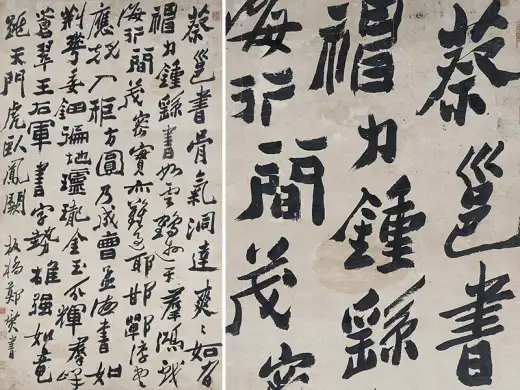 蔡邕書骨氣洞達爽爽如有
神力鍾繇書如雲鵠遊天羣鴻戲
海行間茂密實亦難過耶鄲淳書
應規入矩方圓乃成曹書如
荊華委鈿遍地瓊瑤金玉不輝羣峰
蒼翠王右軍書字勢雄强如龍
跳天門虎臥鳳闕 板橋鄭燮書
蔡邕書
神力鍾繇
海行間茂密